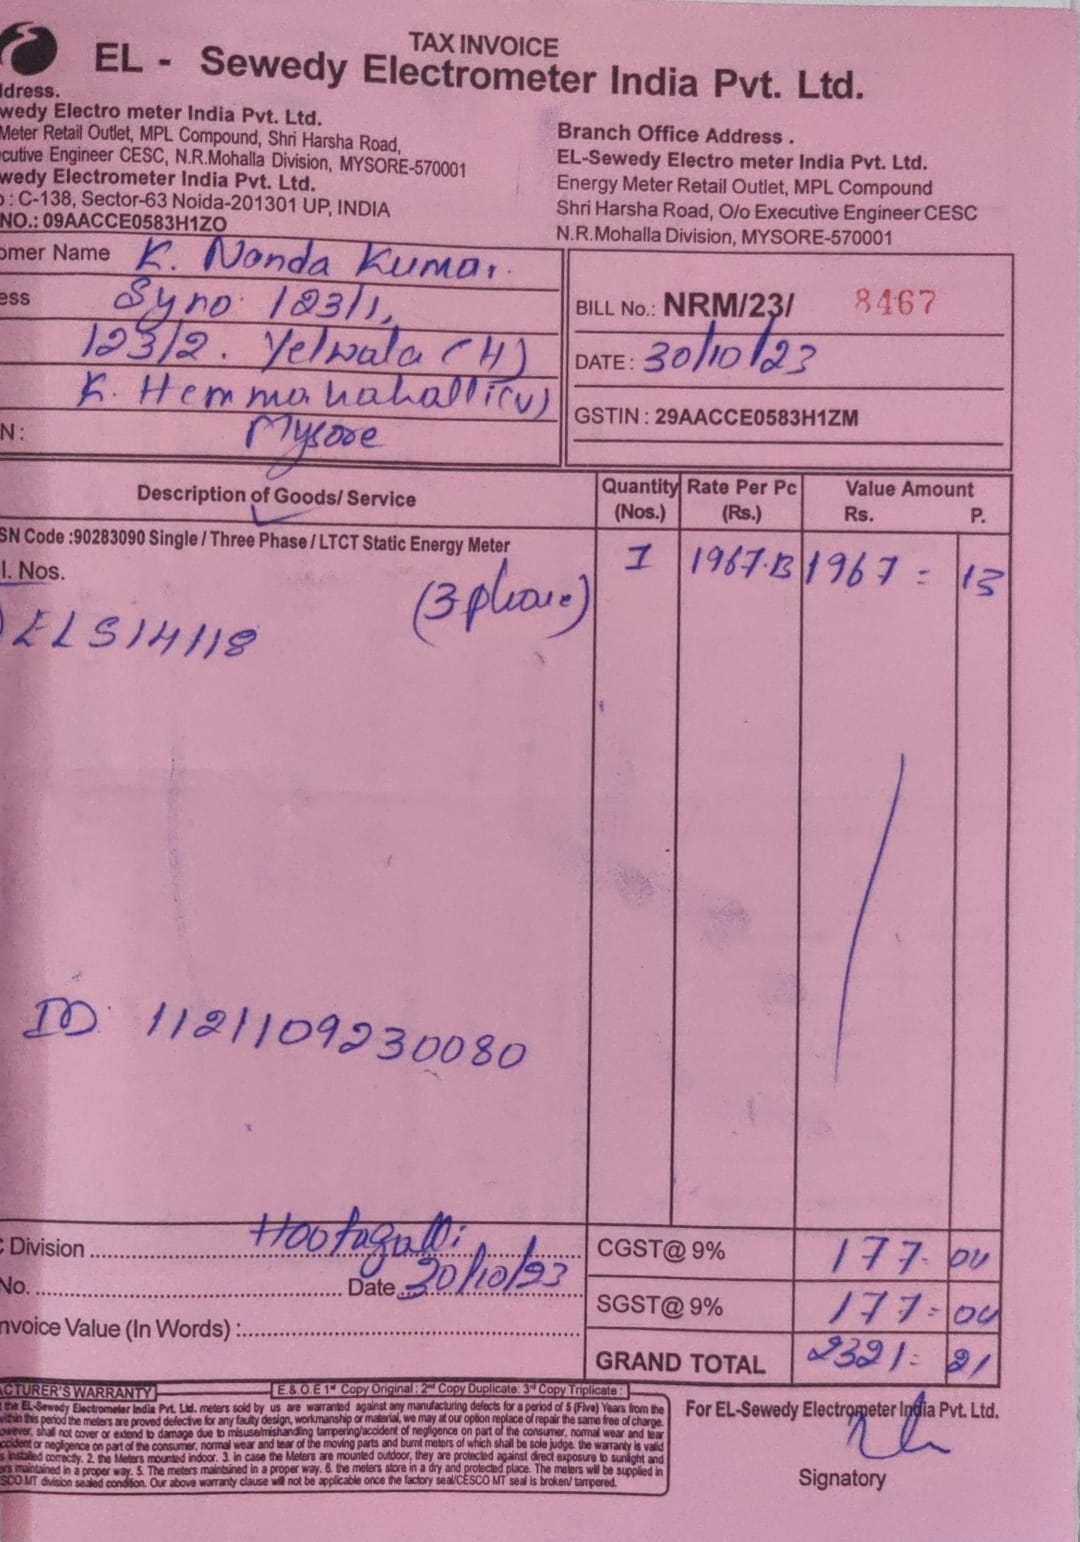 TAX INVOICE
EL - Sewedy Electrometer India Pvt. Ltd.
ddress.
wedy Electro meter India Pvt. Ltd.
Meter Retail Outlet, MPL Compound, Shri Harsha Road,
cutive Engineer CESC, N.R.Mohalla Division, MYSORE-570001
wedy Electrometer India Pvt. Ltd.
: C-138, Sector-63 Noida-201301 UP, INDIA
NO.: 09AACCE0583H1ZO
Branch Office Address .
EL-Sewedy Electro meter India Pvt. Ltd.
Energy Meter Retail Outlet, MPL Compound
Shri Harsha Road, O/o Executive Engineer CESC
N.R.Mohalla Division, MYSORE-570001
omer Name K. Nanda Kumar.
ess Syno 123/1,
123/2. Yelwala (H)
K. Hemmanahalli (V)
N: Mysore
BILL No.: NRM/23/ 8467
DATE: 30/10/23
GSTIN : 29AACCE0583H1ZM
Description of Goods/ Service Quantity (Nos.) Rate Per Pc (Rs.) Value Amount Rs. P.
SN Code :90283090 Single / Three Phase / LTCT Static Energy Meter
l. Nos. 1 1967.13 1967 = 13
(3 phase)
ELS14118
ID: 1121109230080
Division Hootagalli
No. Date 30/10/23
nvoice Value (In Words) :
CGST@ 9% 177. 04
SGST@ 9% 177= 04
GRAND TOTAL 2321= 21
ACTURER'S WARRANTY E.& O.E 1st Copy Original : 2nd Copy Duplicate: 3rd Copy Triplicate :
the EL-Sewedy Electrometer India Pvt. Ltd. meters sold by us are warranted against any manufacturing defects for a period of 5 (Five) Years from the
within this period the meters are proved defective for any faulty design, workmanship or material, we may at our option replace of repair the same free of charge.
owever, shall not cover or extend to damage due to misuse/mishandling tampering/accident of negligence on part of the consumer, normal wear and tear
ccident or negligence on part of the consumer, normal wear and tear of the moving parts and burnt meters of which shall be sole judge. the warranty is valid
s installed correctly. 2. the Meters mounted indoor. 3. in case the Meters are mounted outdoor, they are protected against direct exposure to sunlight and
ers maintained in a proper way. 5. The meters maintsined in a proper way. 6. the meters store in a dry and protected place. The meters will be supplied in
SCO MT division sealed condition. Our above warranty clause will not be applicable once the factory seal/CESCO MT seal is broken/ tampered.
For EL-Sewedy Electrometer India Pvt. Ltd.
Signatory